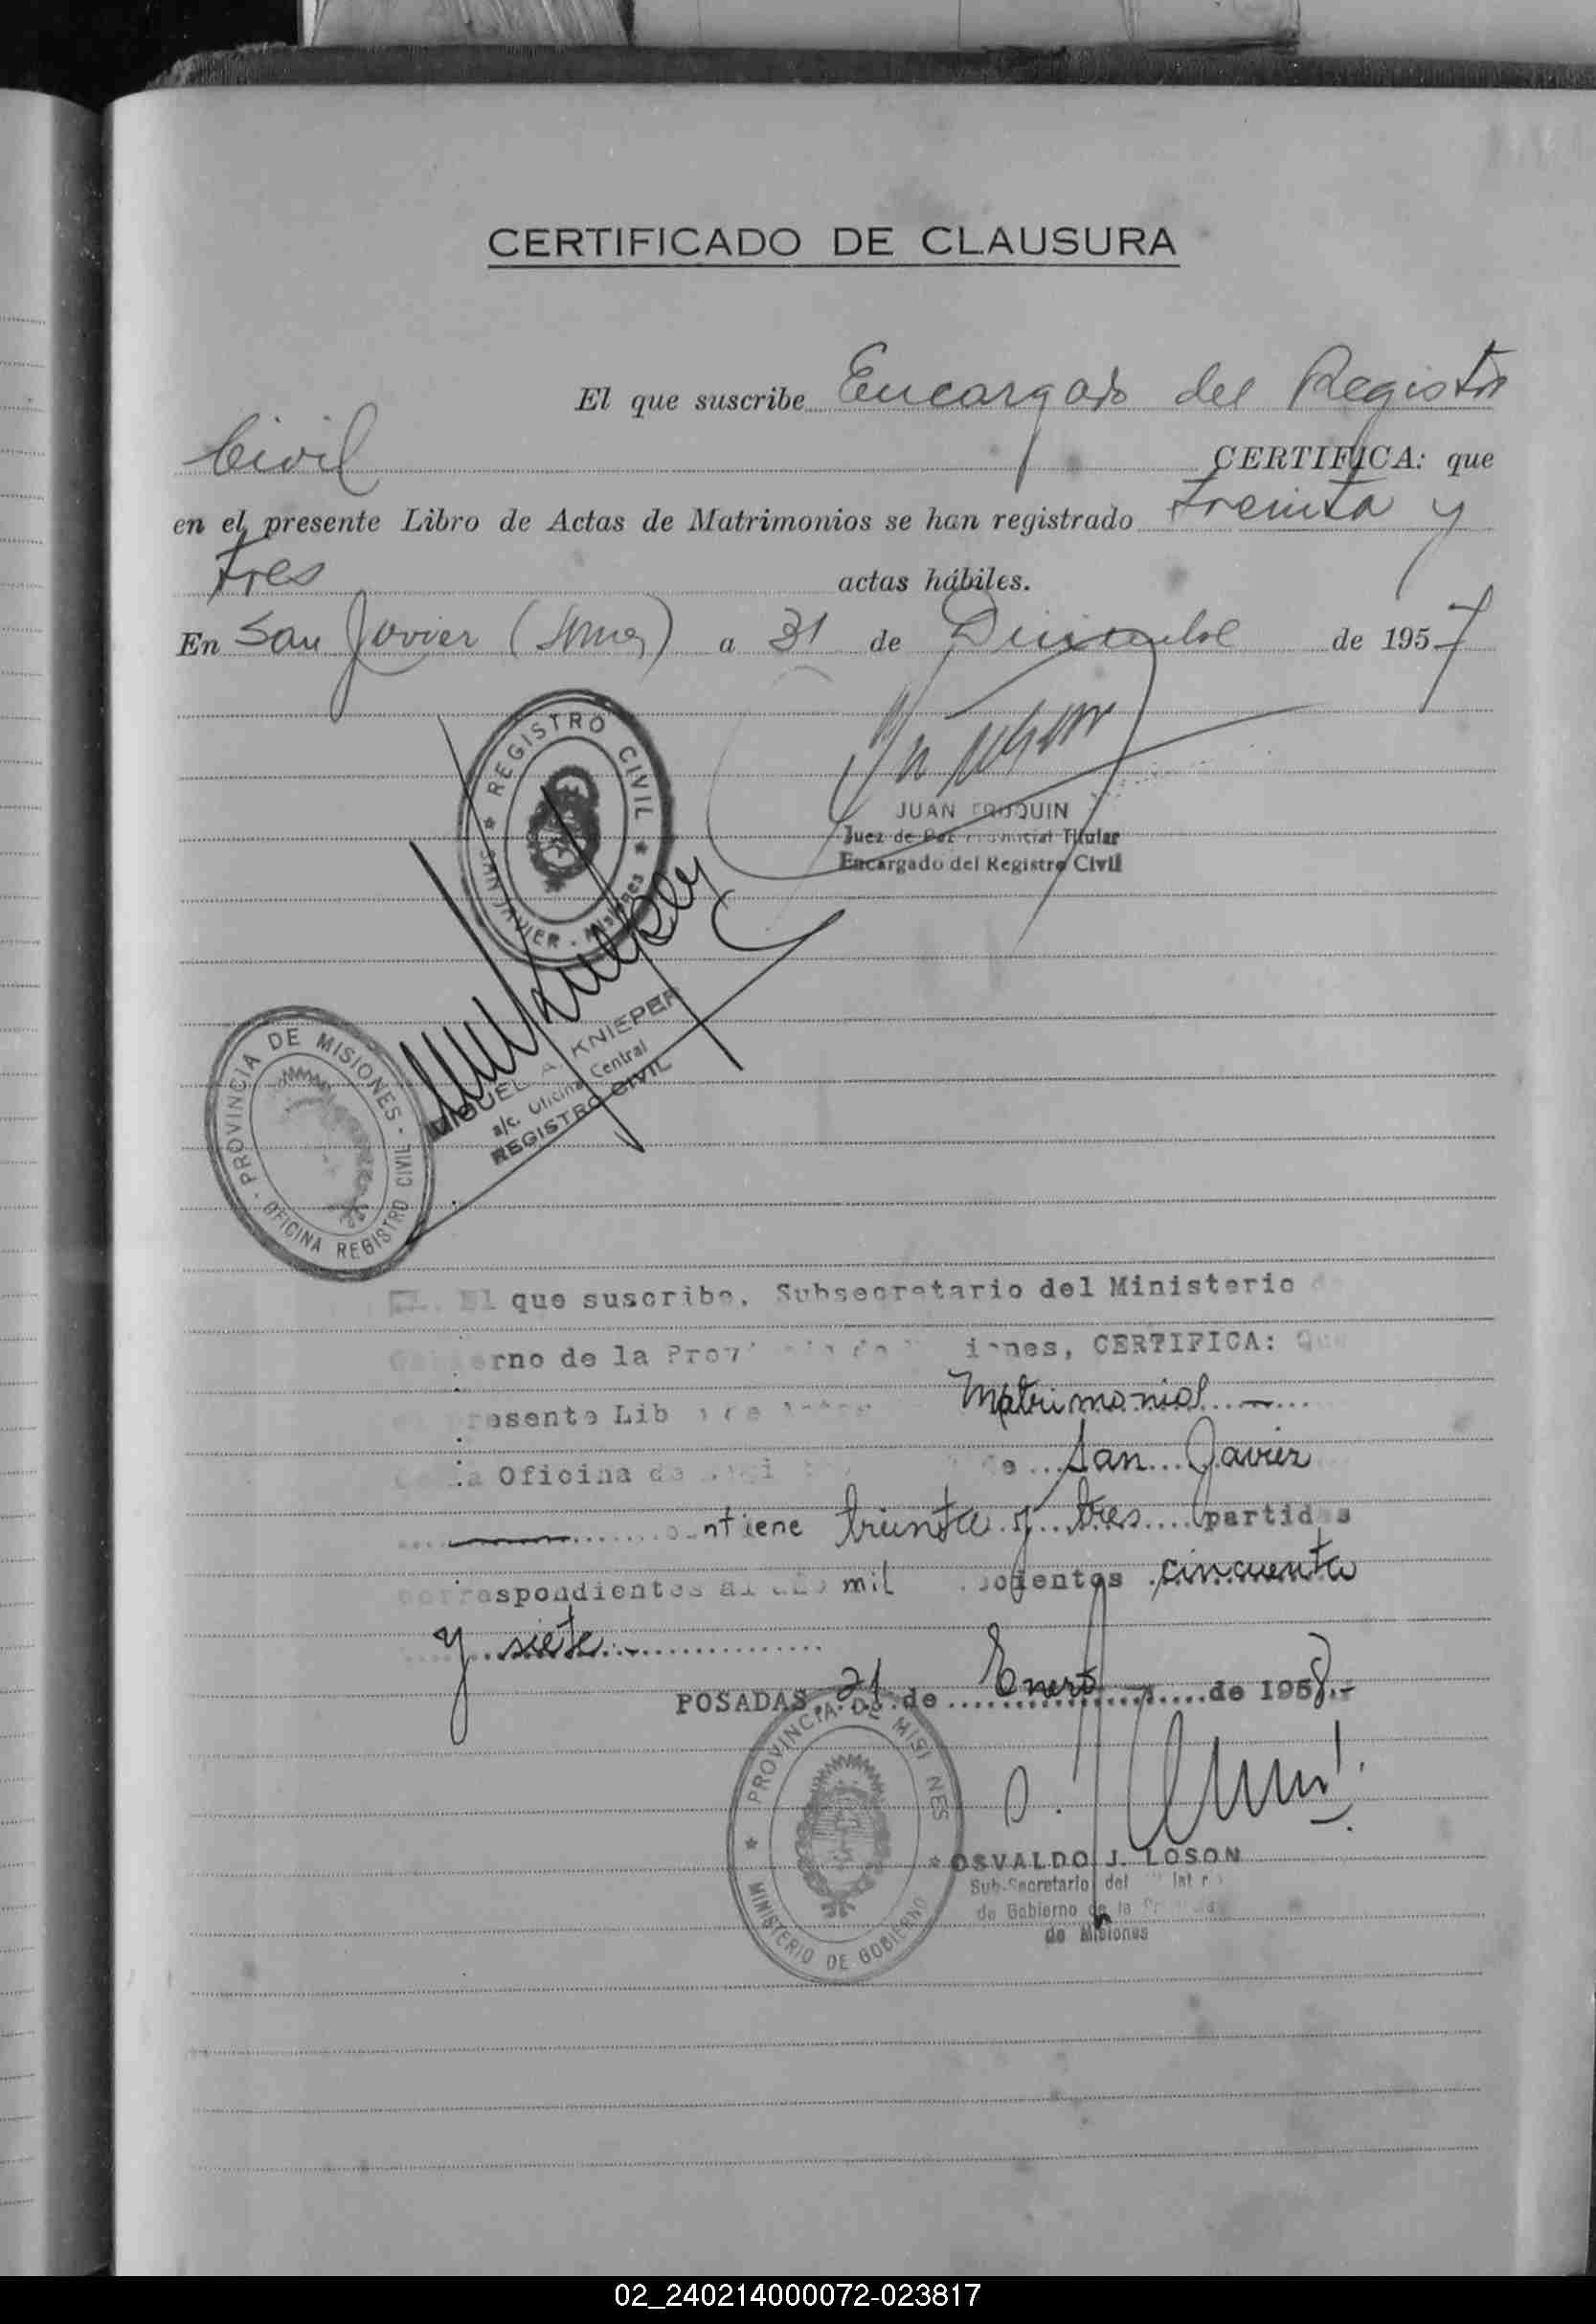 CERTIFICADO DE CLAUSURA
El que suscribe Encargado del Registro
Civil CERTIFICA: que
en el presente Libro de Actas de Matrimonios se han registrado treinta y
tres actas hábiles.
En San Javier a 31 de Diciembre de 1957
REGISTRO CIVIL
SAN JAVIER - Misiones
JUAN
Juez de Paz Provincial Titular
Encargado del Registro Civil
MIGUEL A. KNIEPER
a/c. Oficina Central
REGISTRO CIVIL
PROVINCIA DE MISIONES
OFICINA REGISTRO CIVIL
El que suscribe, Subsecretario del Ministerio de
Gobierno de la Provincia de Misiones, CERTIFICA: Que
el presente Libro de Actas Matrimonial
de la Oficina de de San Javier
contiene treinta y tres partidas
correspondientes al año mil novecientos cincuenta
y siete
POSADAS, 21 de Enero de 1958.-
PROVINCIA DE MISIONES
MINISTERIO DE GOBIERNO
OSVALDO J. LOSON
Sub-Secretario del Ministerio
de Gobierno de la Provincia
de Misiones
02_240214000072-023817